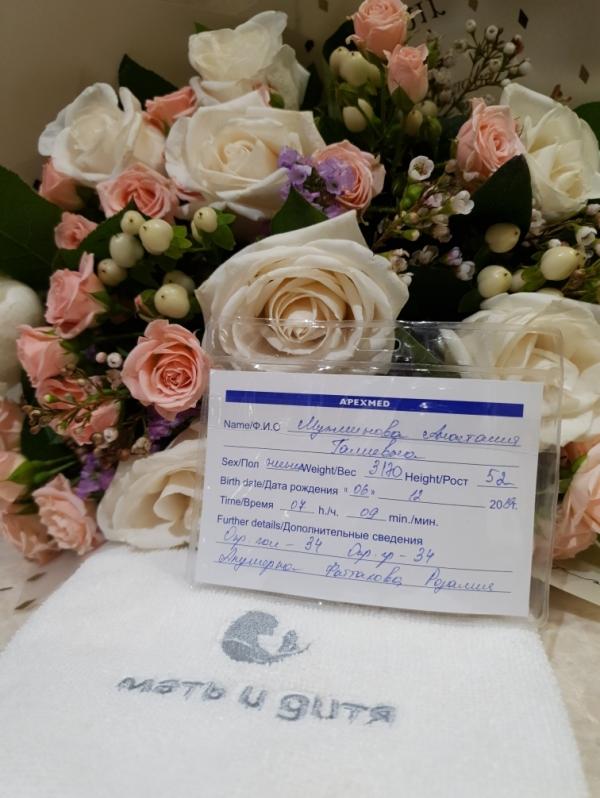 APEXMED
Name/Ф.И.О Муллинова Анастасия
Галиевна
Sex/Пол жен Weight/Вес 3170 Height/Рост 52
Birth date/Дата рождения "06" 12 20
Time/Время 07 h/ч. 09 min./мин.
Further details/Дополнительные сведения
Окр гол - 34 Окр. гр - 34
Акушерка Фаттахова Розалия
мать и дитя